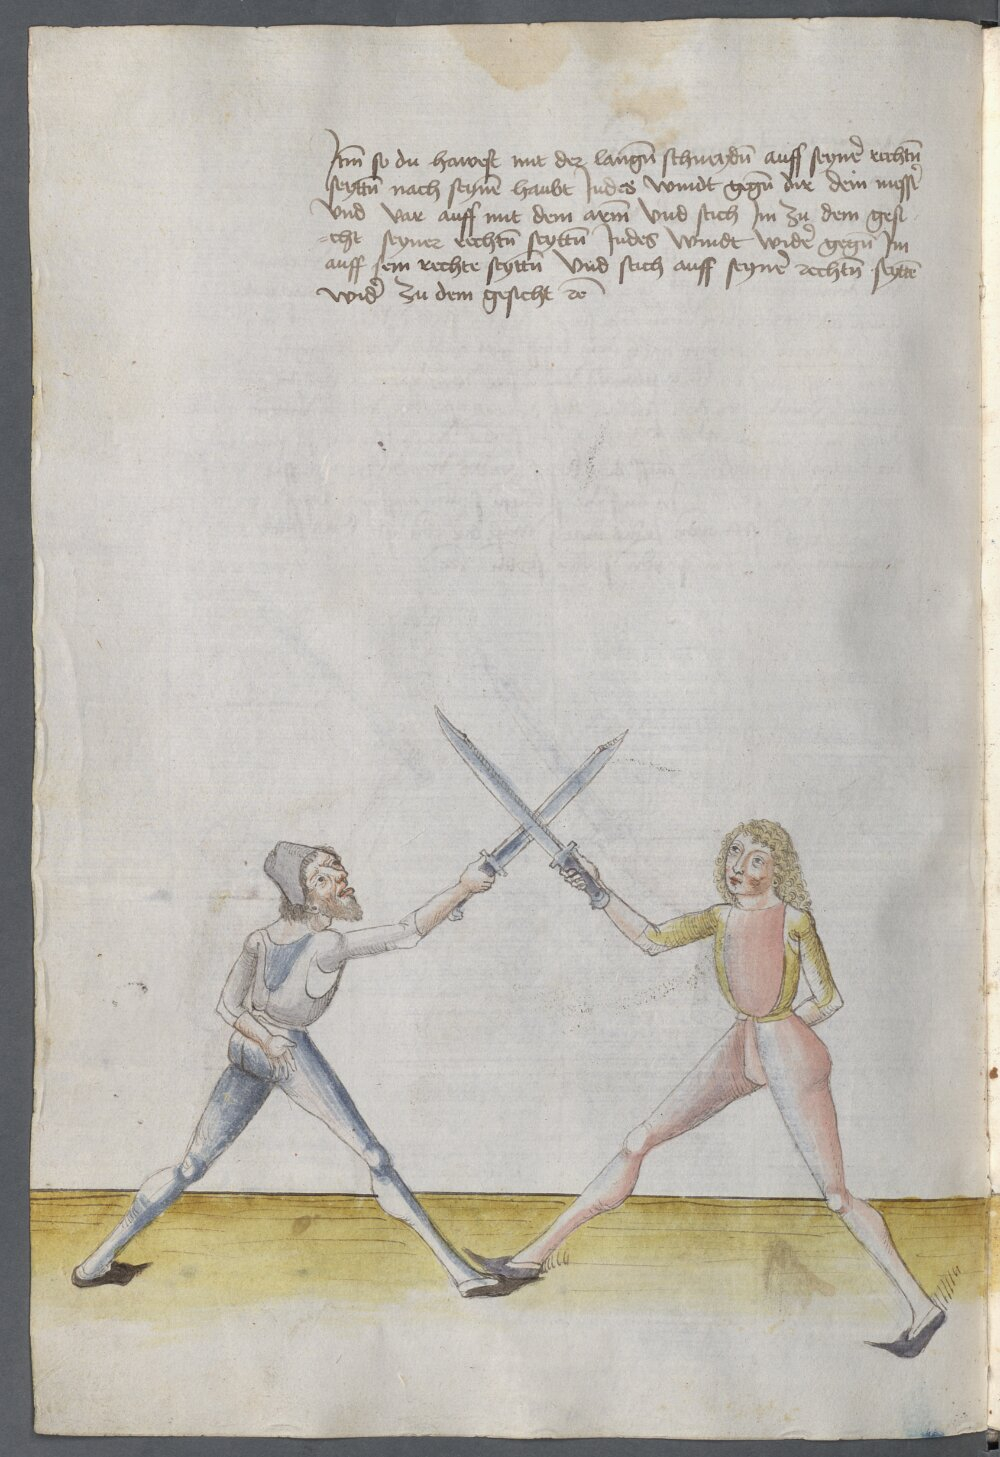 Itm so du hawest mit der langn̄ schneydn̄ auff seynē rechtn̄
seyttn̄ nach seynē haubt Indes windt gegn̄ dir dein messē
Und var auff mit dem arm̄ Und stich Im zu dem gesi-
=cht seyner rechtn̄ seyttn̄ Indes windt widē gegn̄ Im
auff sein rechte seyttn̄ Und stich auff seynē rechtn̄ seyttē
widē zu dem gesicht rc̄